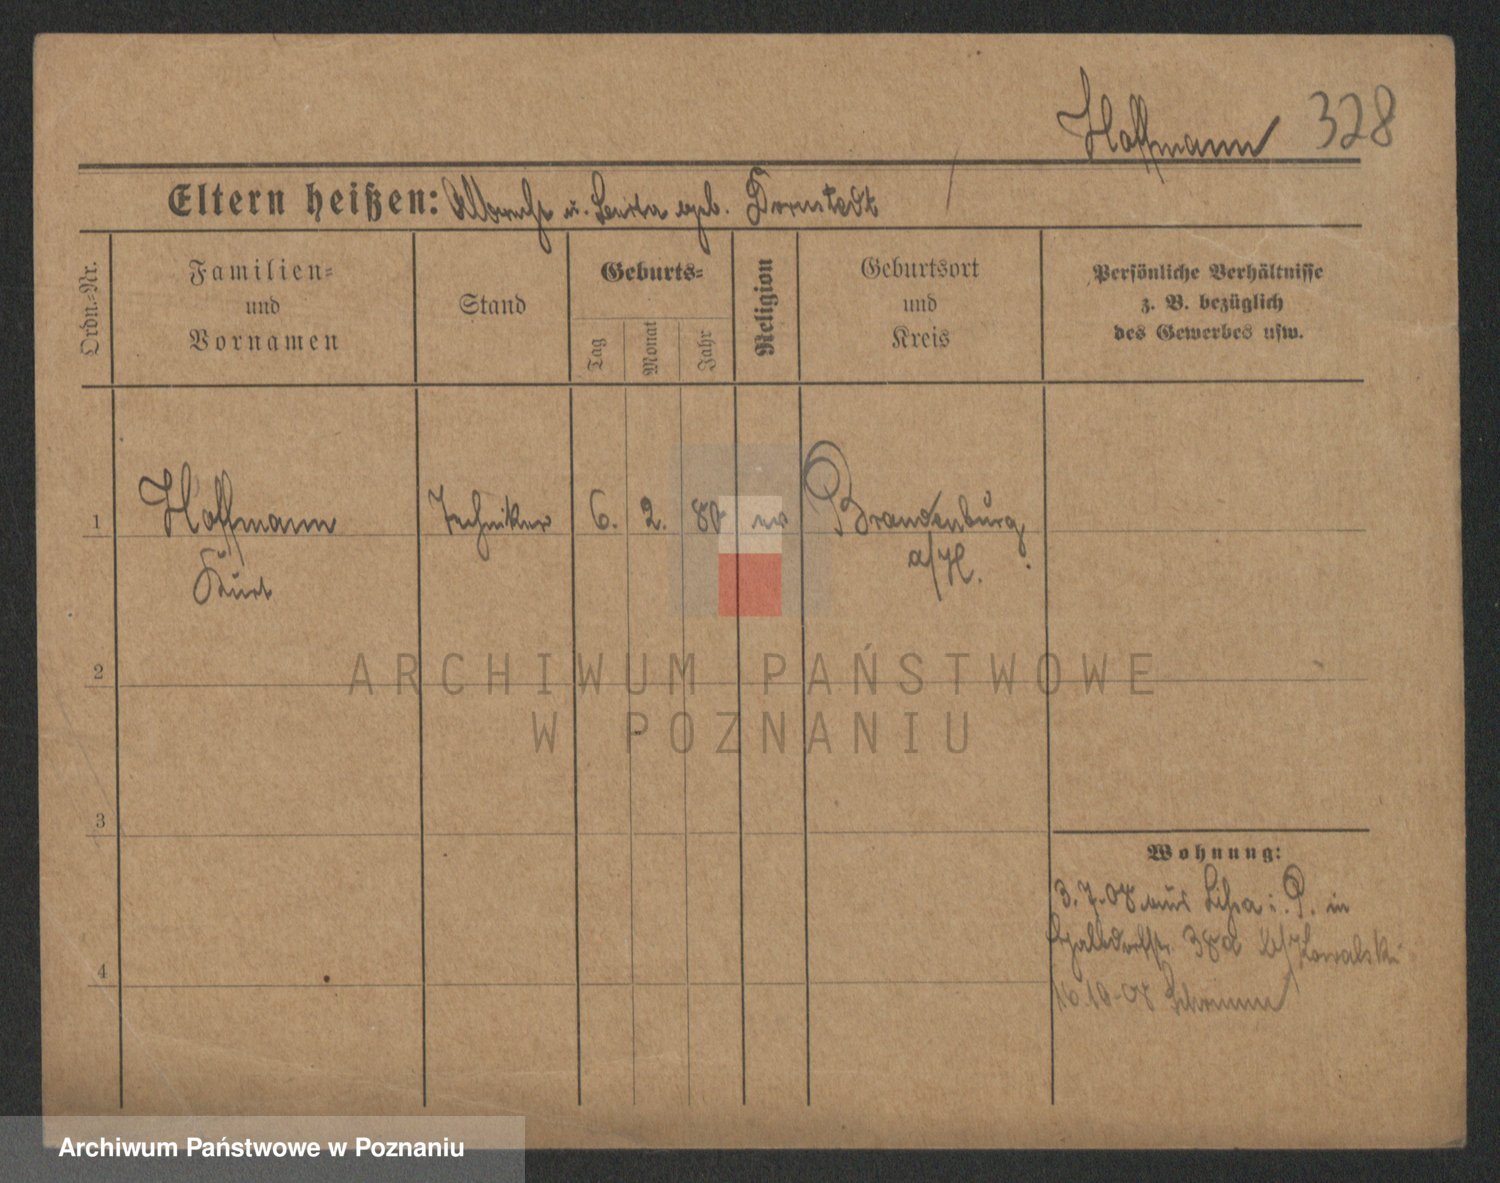 Hoffmann 328
Eltern heißen: Albrecht u. geb. Dornstedt
Ordn.-Nr.
Familien-
und
Vornamen
Stand
Geburts-
Tag
Monat
Jahr
Religion
Geburtsort
und
Kreis
Persönliche Verhältnisse
z. B. bezüglich
des Gewerbes usw.
1 Hoffmann Techniker 6. 2. 80 ev Brandenburg
Kurt a/H.
2
3
4
Wohnung:
3.7.08 aus Lissa i. P. in
38a b/Kowalski
Schrimm
ARCHIWUM PAŃSTWOWE
W POZNANIU
Archiwum Państwowe w Poznaniu